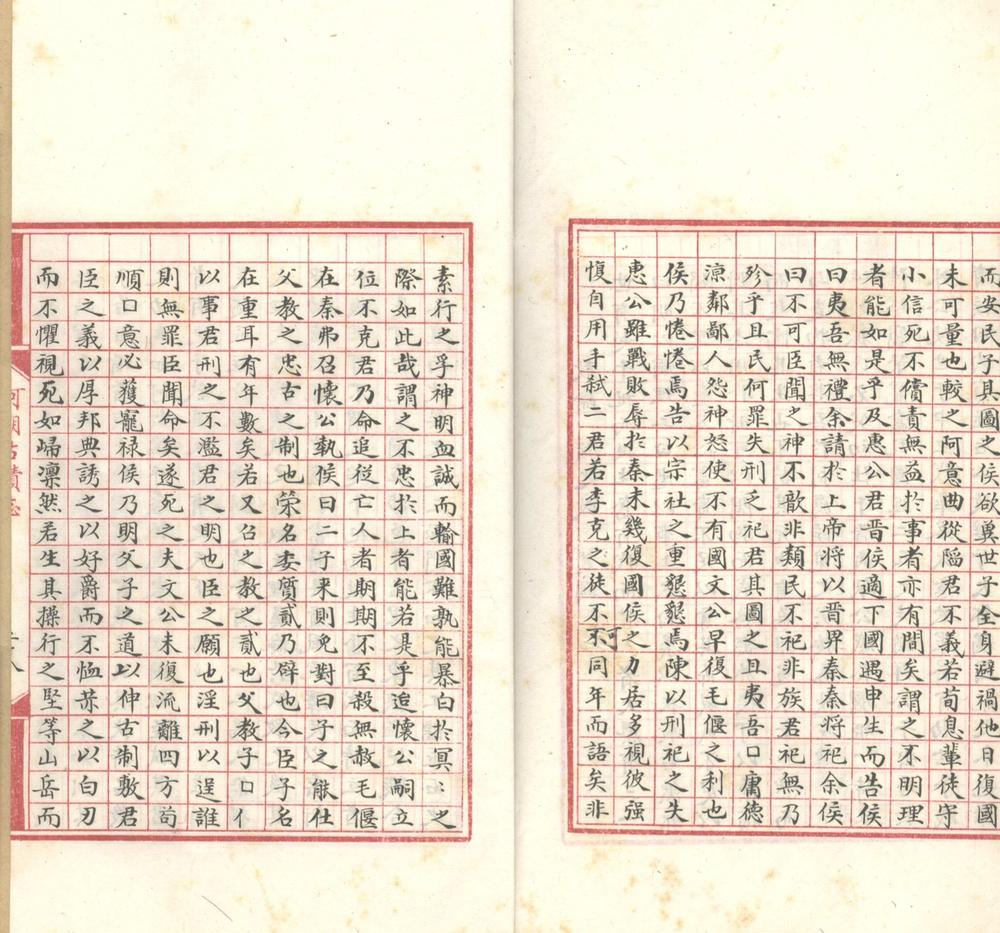 而安民子其圖之侯欲冀世子全身避禍他日復國
未可量也較之阿意曲從陷君不義若荀息輩徒守
小信死不償責無益於事者亦有間矣謂之不明理
者能如是乎及惠公君晋侯適下國遇申生而告侯
曰夷吾無禮余請於上帝將以晋畀秦秦將祀余侯
曰不可臣聞之神不歆非類民不祀非族君祀無乃
殄乎且民何罪失刑乏祀君其圖之且夷吾口庸德
涼鄰鄙人怨神怒使不有國文公早復毛偃之利也
侯乃惓惓焉告以宗社之重懇懇焉陳以刑祀之失
惠公雖戰敗辱於秦未幾復國侯之力居多視彼强
愎自用手弑二君若李克之徒不可不同年而語矣非
素行之孚神明血誠而輸國難孰能暴白於冥〻之
際如此哉謂之不忠於上者能若是乎迨懷公嗣立
位不克君乃命追從亡人者期期不至殺無赦毛偃
在秦弗召懷公執侯曰二子来則免對曰子之能仕
父教之忠古之制也策名委質貳乃辟也今臣子名
在重耳有年數矣若又召之教之貳也父教子口亻
以事君刑之不濫君之明也臣之願也淫刑以逞誰
則無罪臣聞命矣遂死之夫文公未復流離四方苟
順口意必獲寵禄侯乃明父子之道以伸古制敷君
臣之義以厚邦典誘之以好爵而不恤恭之以白刃
而不懼視死如歸凛然若生其操行之堅等山岳而